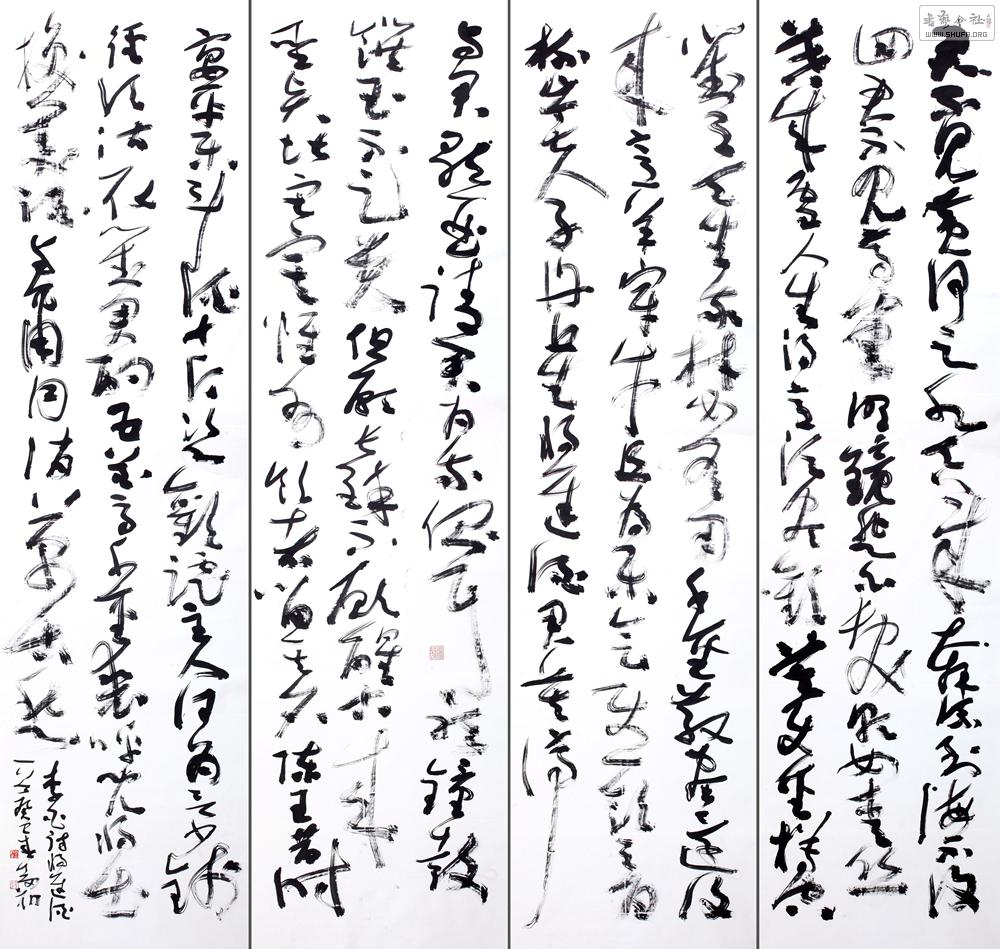 君不見黄河之水天上来奔流到海不復
回君不見高堂明鏡悲白髮朝如青丝
暮成雪人生得意须尽欢莫使金樽空
對月天生我材必有用千金散盡还復
来烹羊宰牛且为乐会须一飲三百
杯岑夫子丹丘生将进酒君莫停
与君歌一曲请君为我侧耳听鐘鼓
馔玉不足贵但愿长醉不愿醒古来
圣贤皆寂寞惟有饮者留其名陈王昔时
宴平乐斗酒十千恣歡謔主人何为言少钱
径须沽取對君酌五花马千金裘呼兒将出
换美酒与尔同消万古愁
李白诗将进酒
癸巳春
WWW.SHUFA.ORG